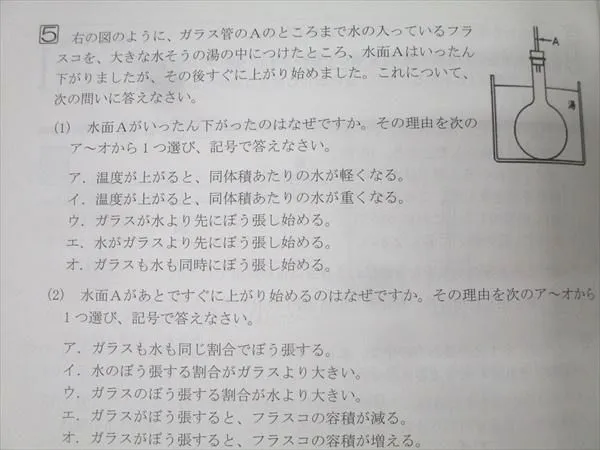 5 右の図のように、ガラス管のAのところまで水の入っているフラ
スコを、大きな水そうの湯の中につけたところ、水面Aはいったん
下がりましたが、その後すぐに上がり始めました。これについて、
次の問いに答えなさい。
A
湯
(1) 水面Aがいったん下がったのはなぜですか。その理由を次の
ア〜オから1つ選び、記号で答えなさい。
ア．温度が上がると、同体積あたりの水が軽くなる。
イ．温度が上がると、同体積あたりの水が重くなる。
ウ．ガラスが水より先にぼう張し始める。
エ．水がガラスより先にぼう張し始める。
オ．ガラスも水も同時にぼう張し始める。
(2) 水面Aがあとですぐに上がり始めるのはなぜですか。その理由を次のア〜オから
1つ選び、記号で答えなさい。
ア．ガラスも水も同じ割合でぼう張する。
イ．水のぼう張する割合がガラスより大きい。
ウ．ガラスのぼう張する割合が水より大きい。
エ．ガラスがぼう張すると、フラスコの容積が減る。
オ．ガラスがぼう張すると、フラスコの容積が増える。